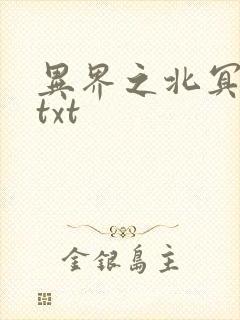 異界之北冥
txt
金銀島主